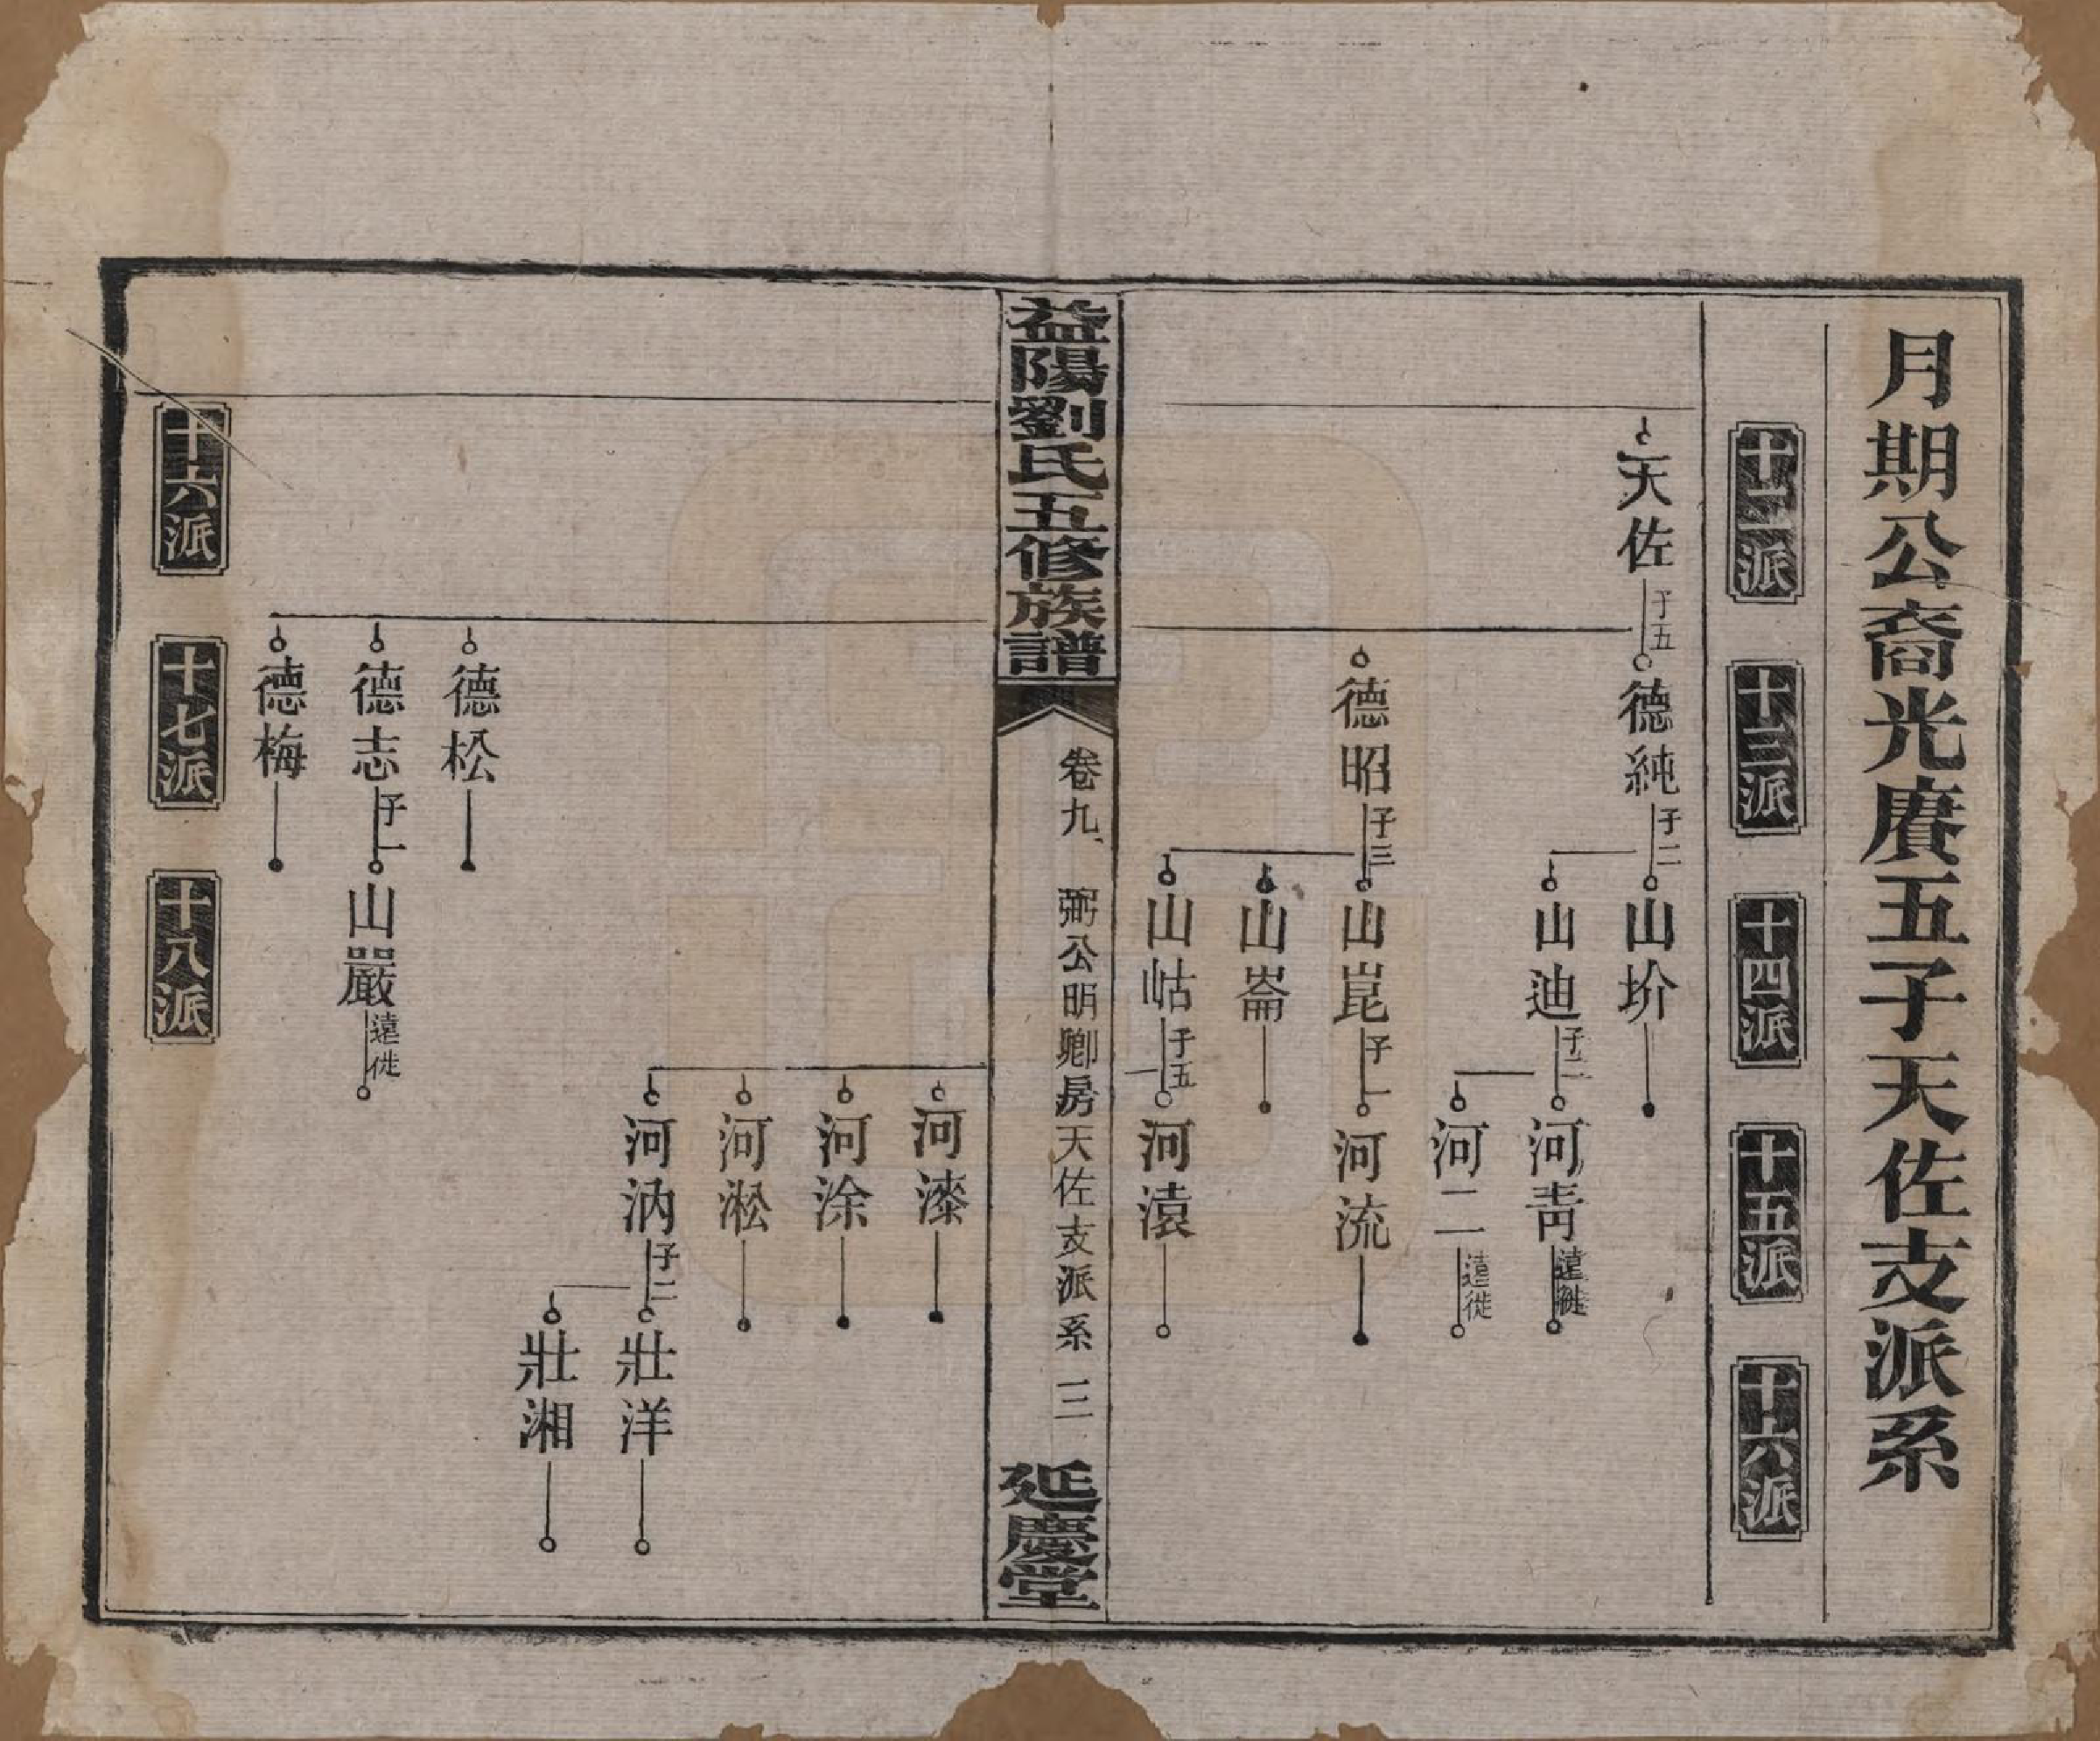 月期公裔光賡五子天佐支派系
十二派
十三派
十四派
十五派
十六派
天佐
子五
德純
子二
山圿
山迪
子二
河靑
遠徙
河二
遠徙
德昭
子三
山崑
子一
河流
山崙
山岵
子五
河遠
益陽劉氏五修族譜
卷九
弼公明卿房天佐支派系
三
延慶堂
河漆
河涂
河淞
河汭
子二
壯洋
壯湘
德松
德志
子一
山巖
遠徙
德梅
十六派
十七派
十八派